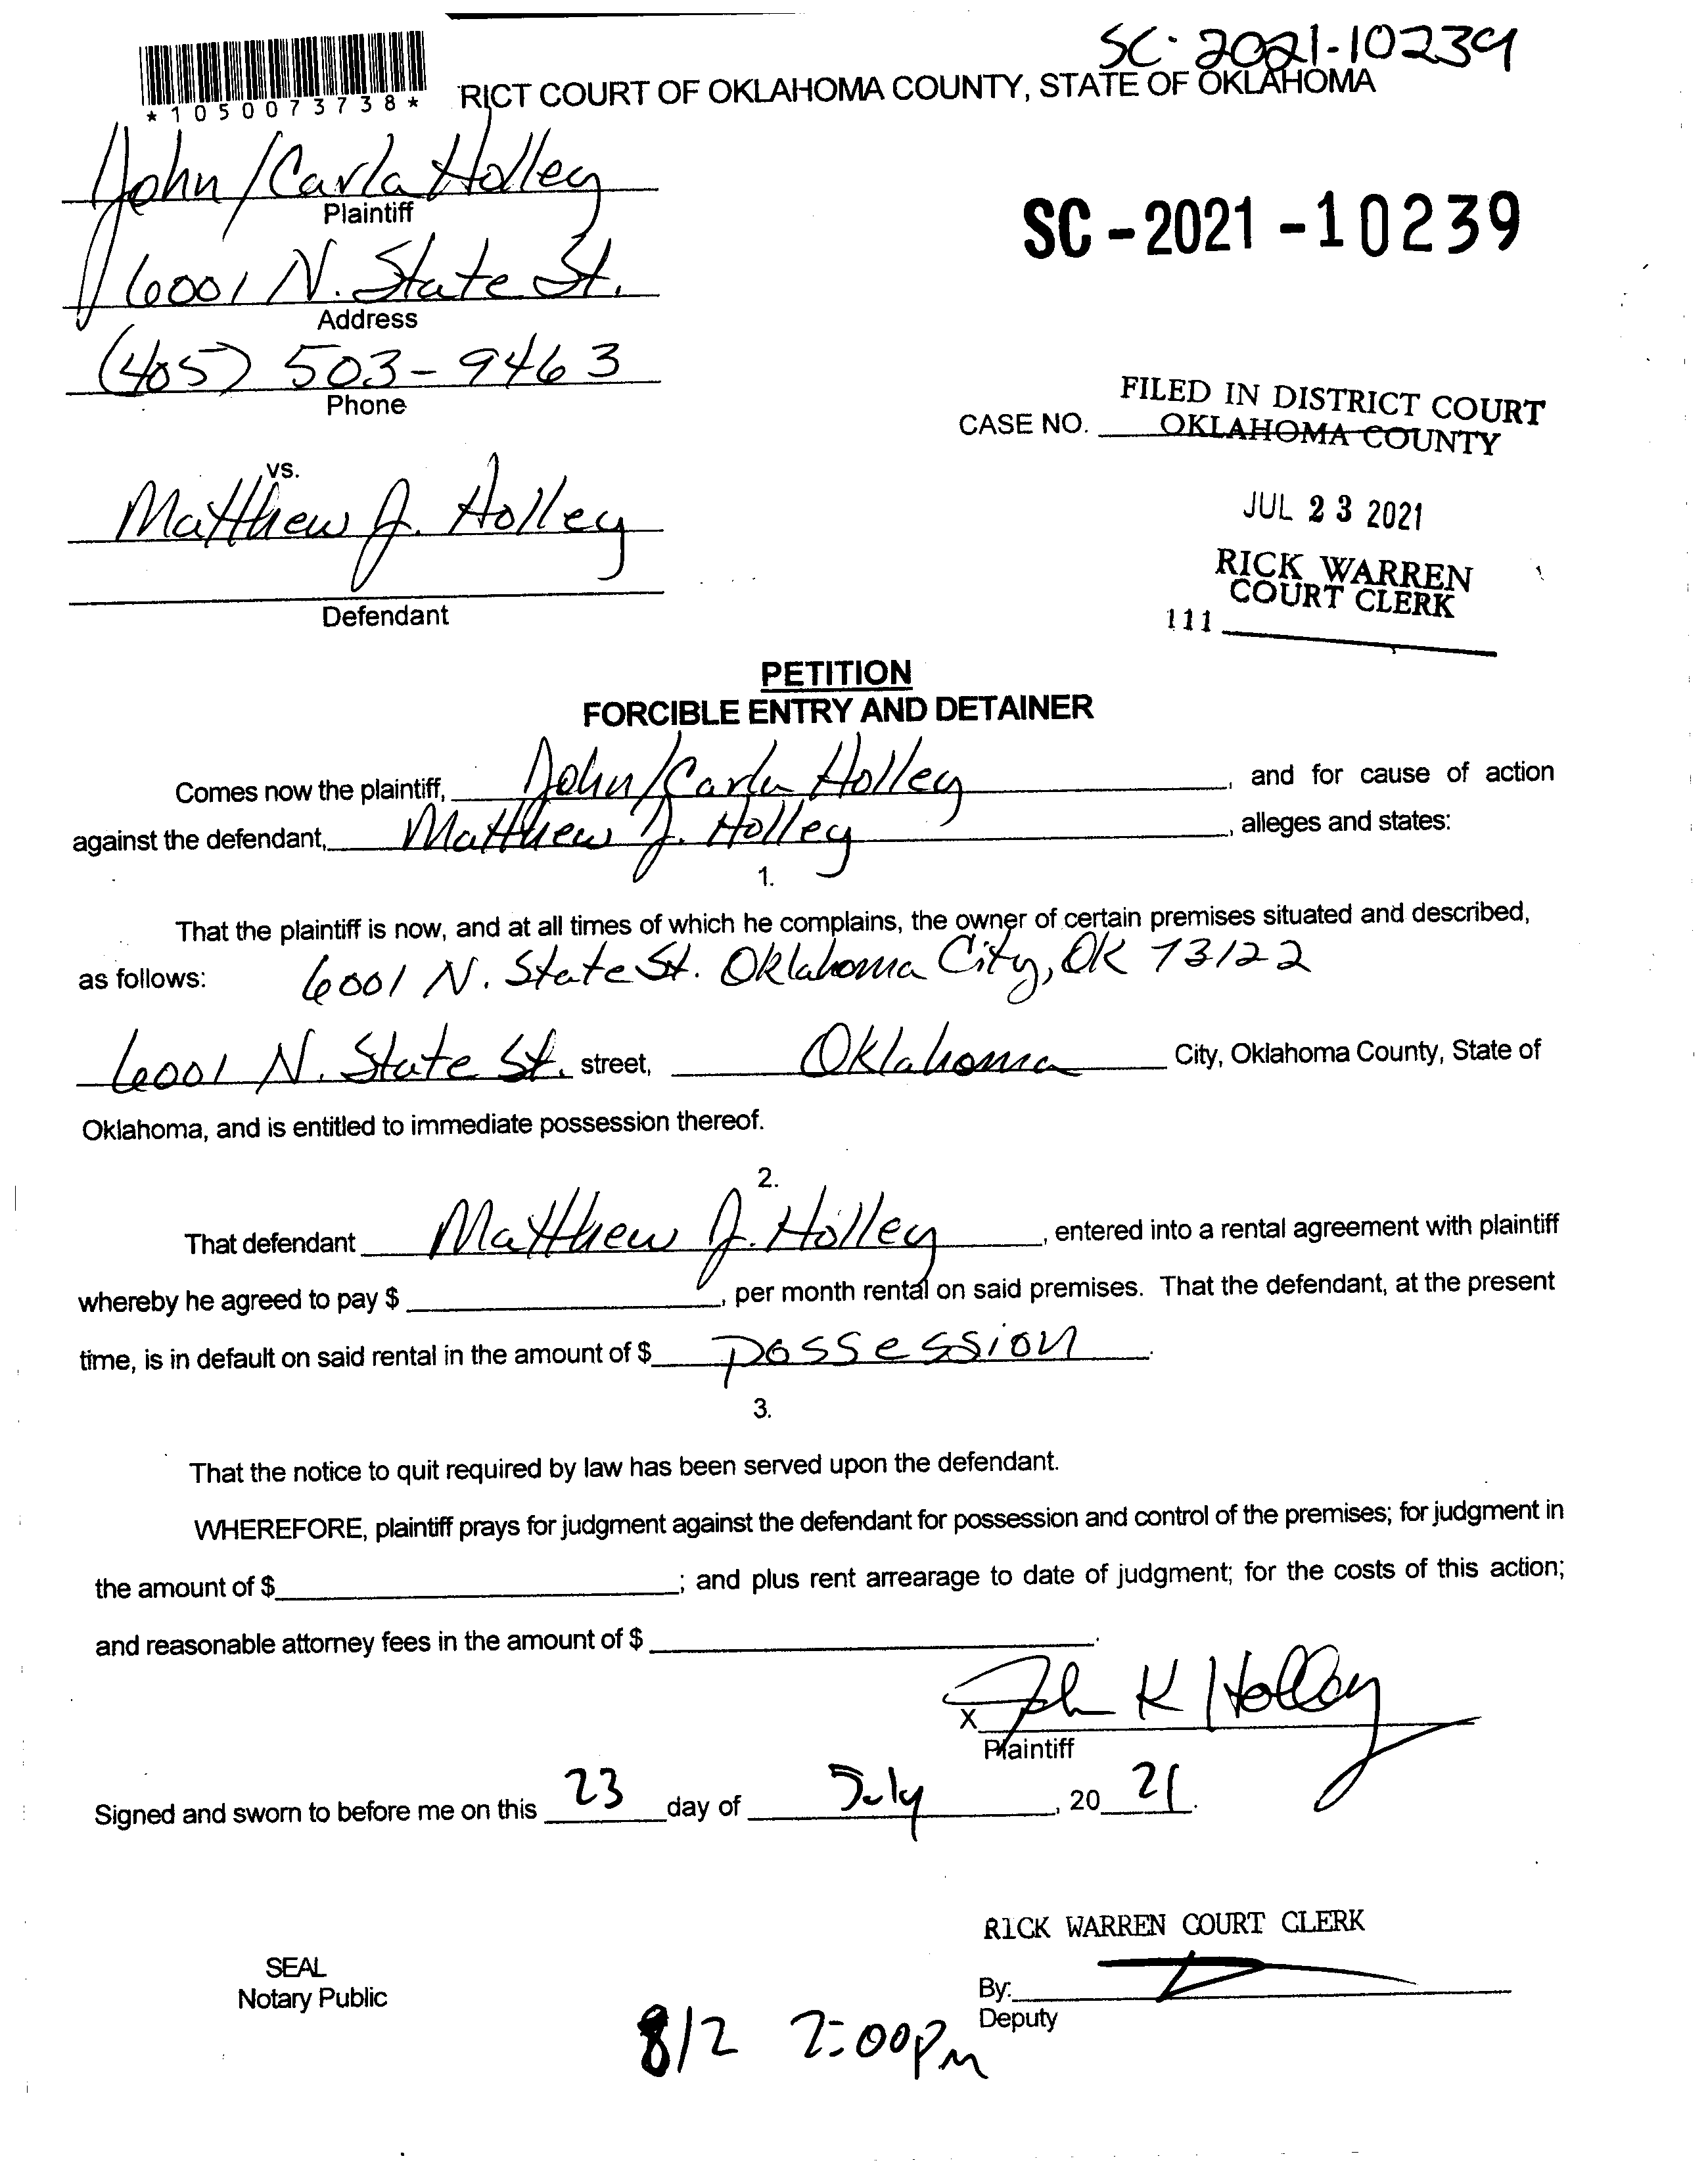 SC-2021-10239
*1050073738*
RICT COURT OF OKLAHOMA COUNTY, STATE OF OKLAHOMA
John/Carla Holley
Plaintiff
SC-2021-10239
6001 N. State St.
Address
(405) 503-9463
Phone
FILED IN DISTRICT COURT
CASE NO. OKLAHOMA COUNTY
vs.
Matthew J. Holley
JUL 23 2021
RICK WARREN
COURT CLERK
Defendant
111
PETITION
FORCIBLE ENTRY AND DETAINER
Comes now the plaintiff, John/Carla Holley, and for cause of action
against the defendant, Matthew J. Holley, alleges and states:
1.
That the plaintiff is now, and at all times of which he complains, the owner of certain premises situated and described,
as follows: 6001 N. State St. Oklahoma City, OK 73122
6001 N. State St. street, Oklahoma City, Oklahoma County, State of
Oklahoma, and is entitled to immediate possession thereof.
2.
That defendant Matthew J. Holley, entered into a rental agreement with plaintiff
whereby he agreed to pay $ , per month rental on said premises. That the defendant, at the present
time, is in default on said rental in the amount of $ possession.
3.
That the notice to quit required by law has been served upon the defendant.
WHEREFORE, plaintiff prays for judgment against the defendant for possession and control of the premises; for judgment in
the amount of $ ; and plus rent arrearage to date of judgment; for the costs of this action;
and reasonable attorney fees in the amount of $ .
X John K Holley
Plaintiff
Signed and sworn to before me on this 23 day of July, 2021.
RICK WARREN COURT CLERK
SEAL
Notary Public
By:
Deputy
8/2 2:00pm